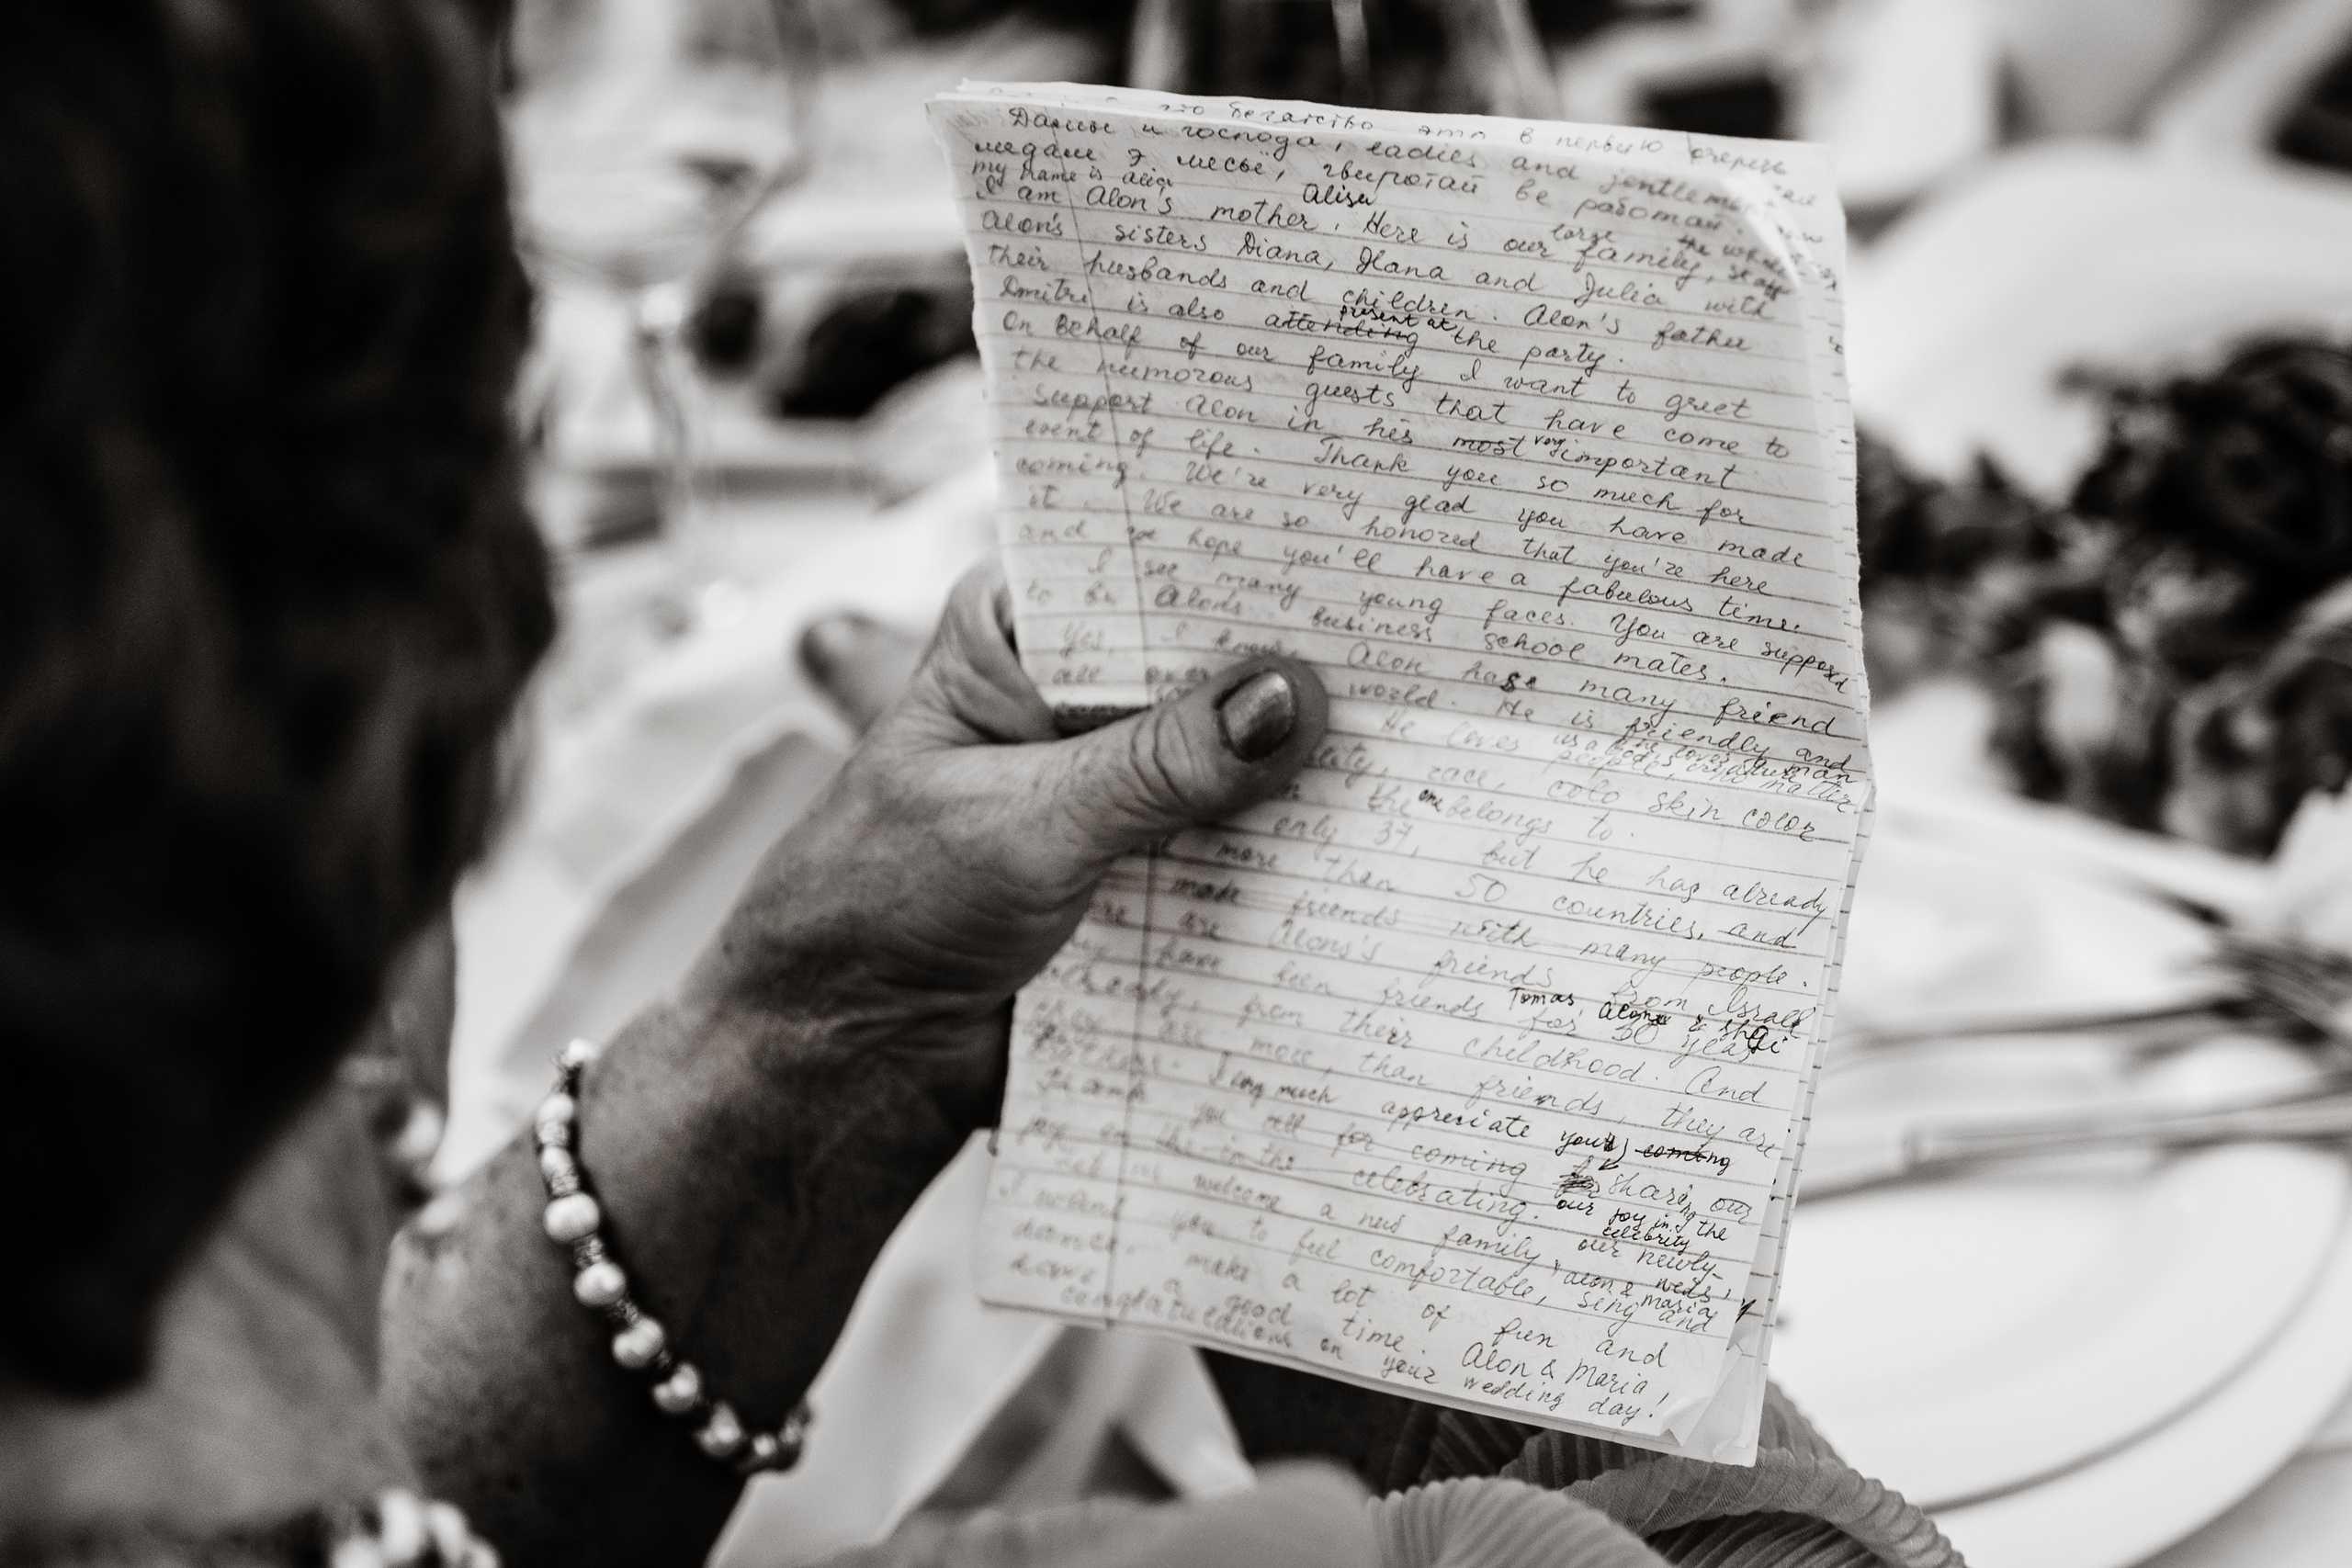 это богатство это в первую очередь
Дамы и господа, ladies and jentlemen,
медам э месьё, гвиротай веработай.
my name is alisa Alisa
I am Alon's mother. Here is our large family,
Alon's sisters Diana, Ilana and Julia with
their husbands and children. Alon's father
Dmitri is also attending present at the party.
On Behalf of our family I want to greet
the numorous guests that have come to
support Alon in his most very important
event of life. Thank you so much for
coming. We're very glad you have made
it. We are so honored that you're here
and we hope you'll have a fabulous time.
I see many young faces. You are supposed
to be Alons business school mates.
Yes, I know, Alon has many friend
all over world. He is friendly and
He loves people, matter
race, colo skin color
the one belongs to.
only 37, but he has already
more than 50 countries, and
made friends with many people.
are Alons's friends from Israel
Tomas Alon & Shai
have been friends for 30 years
already, from their childhood. And
there are more, than friends, they are
brothers. I very much appresiate your coming
you all for coming for sharing our
our joy in the
celebrating. celebrity
Let us welcome a new family, our newly-
weds, Alon & Maria,
I want you to feel comfortable, sing and
dance, make a lot of fun and
have a good time. Alon & Maria,
congratulations on your wedding day!